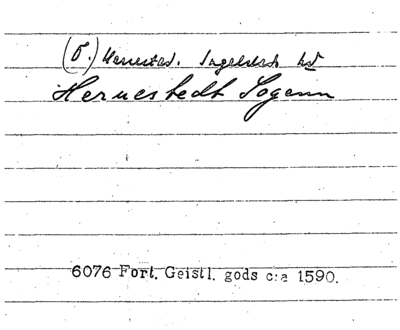 (Ö.) Herrestad. Ingelstads hd
Herrestedt Sogenn
6076 Fort. Geistl. gods c:a 1590.